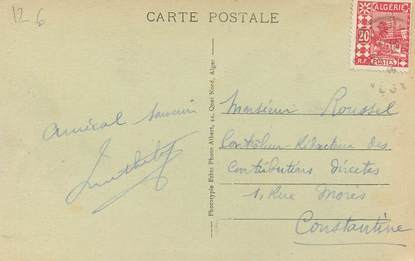 12 6
CARTE POSTALE
ALGÉRIE
20
R.F. POSTES
Amical souvenir
Phototypie Editn Photo Albert, 22, Quai Nord, Alger
Monsieur Roussel
Contrôleur-Rédacteur des
Contributions Directes
1, Rue Morès
Constantine